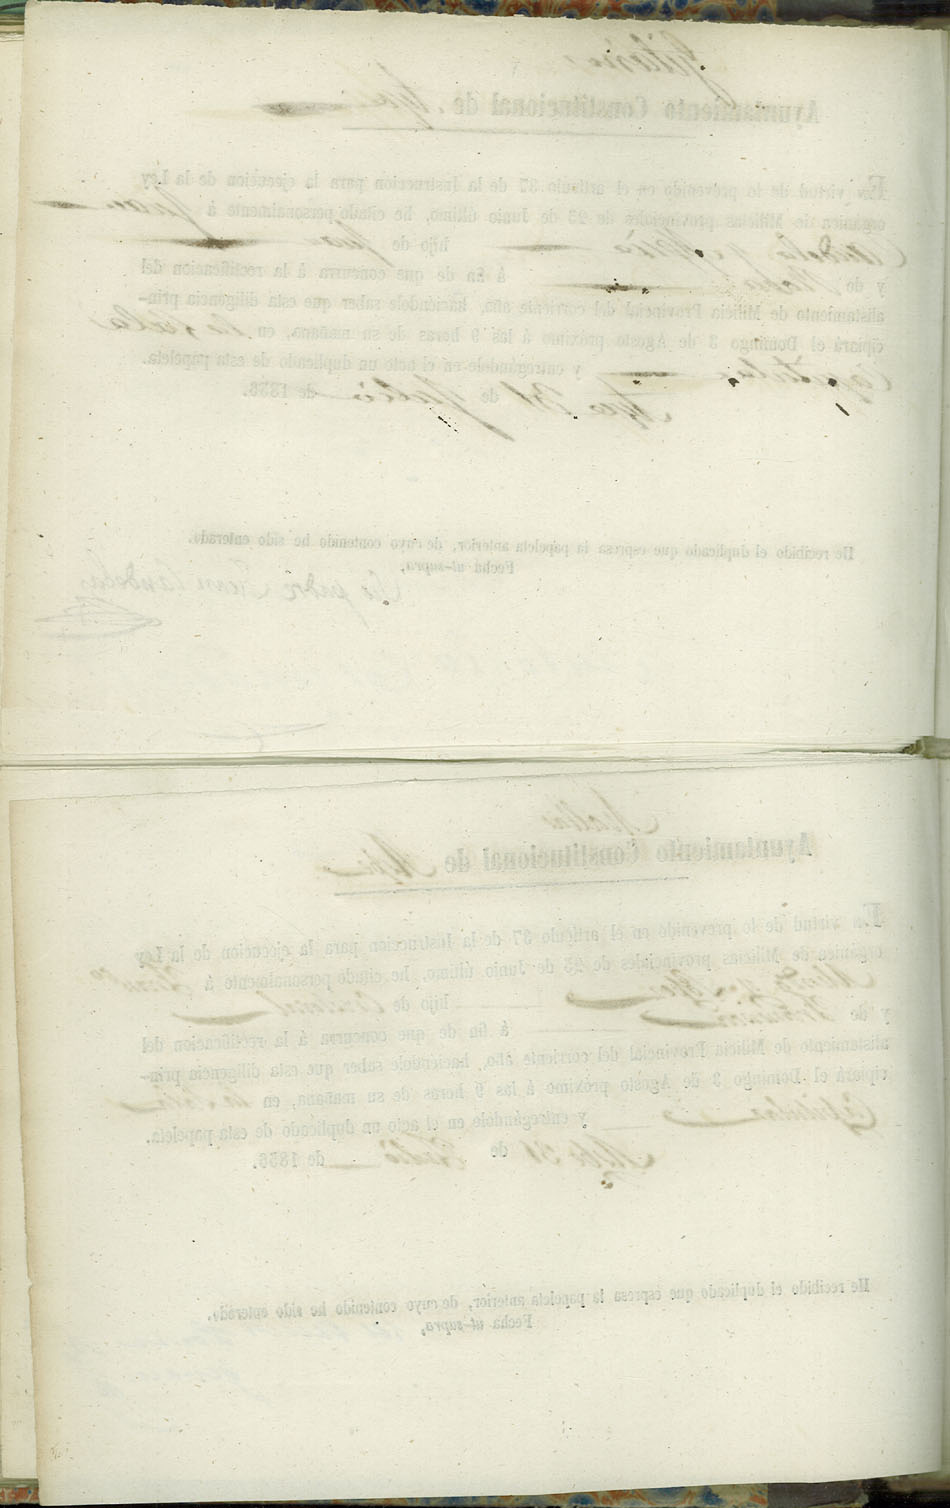 Ayuntamiento Constitucional de
En virtud de lo prevenido en el artículo 37 de la Instruccion para la ejecucion de la Ley
orgánica de Milicias provinciales de 23 de Junio último, he citado personalmente á Juan
Candela y hijo de Juan
y de Rosa á fin de que concurra á la rectificacion del
alistamiento de Milicia Provincial del corriente año, haciéndole saber que esta diligencia prin-
cipiará el Domingo 3 de Agosto próximo á las 9 horas de su mañana, en la Sala
Capitular y entregándole en el acto un duplicado de esta papeleta.
31 de Julio de 1856.
He recibido el duplicado que espresa la papeleta anterior, de cuyo contenido he sido enterado.
Fecha ut-supra,
Su padre Juan Candela
Ayuntamiento Constitucional de
En virtud de lo prevenido en el artículo 37 de la Instruccion para la ejecucion de la Ley
orgánica de Milicias provinciales de 23 de Junio último, he citado personalmente á
hijo de
y de á fin de que concurra á la rectificacion del
alistamiento de Milicia Provincial del corriente año, haciéndole saber que esta diligencia prin-
cipiará el Domingo 3 de Agosto próximo á las 9 horas de su mañana, en la Sala
Capitular y entregándole en el acto un duplicado de esta papeleta.
31 de Julio de 1856.
He recibido el duplicado que espresa la papeleta anterior, de cuyo contenido he sido enterado.
Fecha ut-supra,